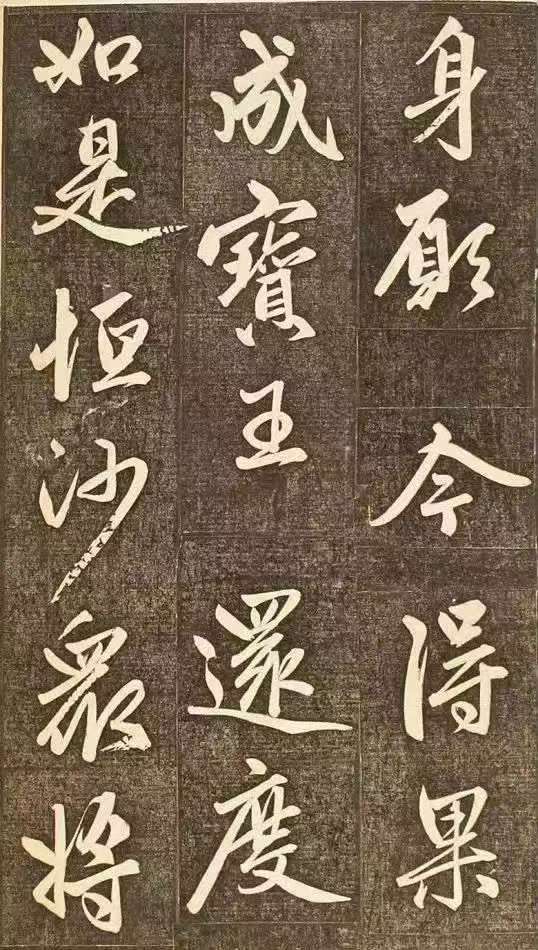 身願今得果
成寶王還度
如是恒沙衆將